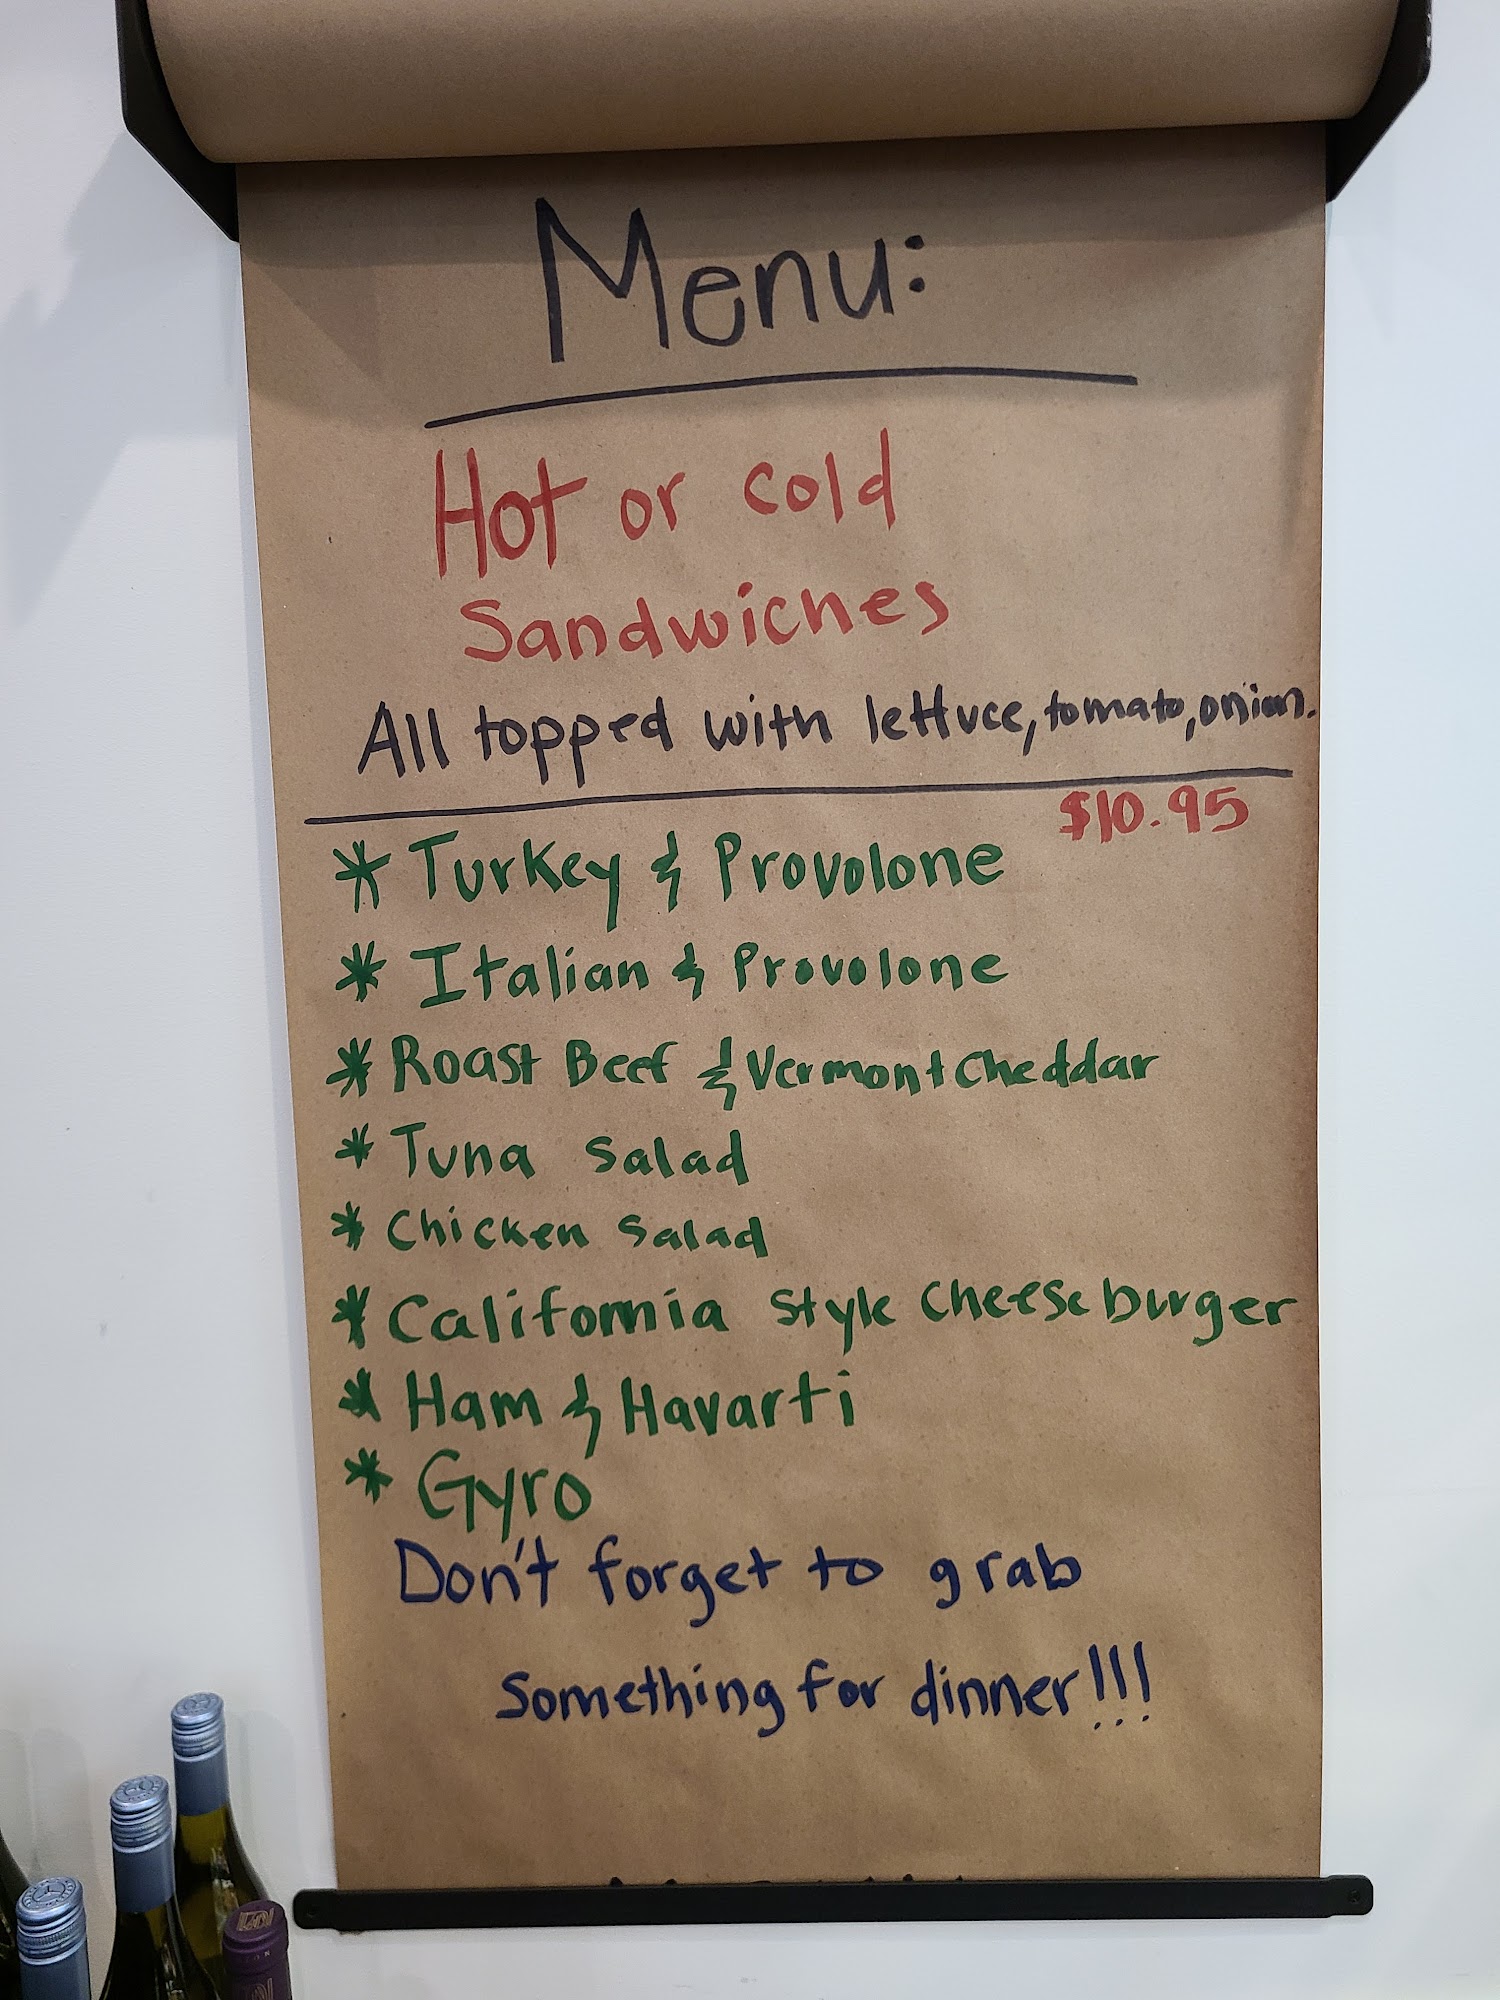 Menu:
Hot or cold
Sandwiches
All topped with lettuce, tomato, onion.
$10.95
* Turkey & Provolone
* Italian & Provolone
* Roast Beef & Vermont Cheddar
* Tuna Salad
* Chicken Salad
* California Style Cheese burger
* Ham & Havarti
* Gyro
Don't forget to grab
Something for dinner!!!